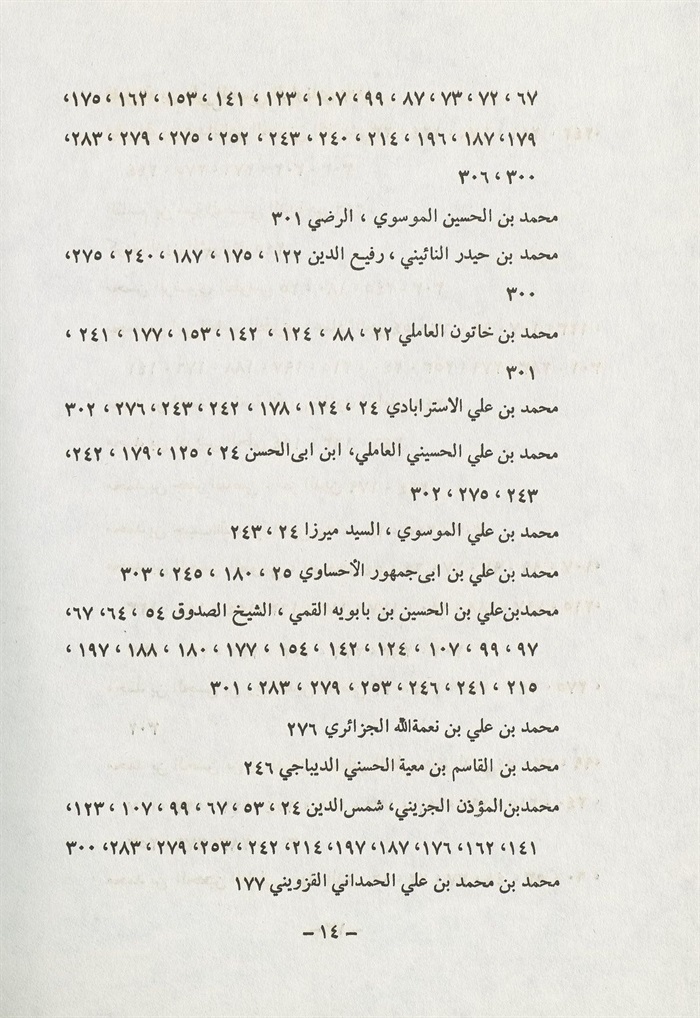 ٦٧ ، ٧٢ ، ٧٣ ، ٨٧ ، ٩٩ ، ١٠٧ ، ١٢٣ ، ١٤١ ، ١٥٣ ، ١٦٢ ، ١٧٥،
١٧٩ ،١٨٧ ، ١٩٦ ، ٢١٤ ، ٢٤٠ ، ٢٤٣ ، ٢٥٢ ، ٢٧٥ ، ٢٧٩ ، ٢٨٣،
٣٠٠ ، ٣٠٦
محمد بن الحسين الموسوي ، الرضي ٣٠١
محمد بن حيدر النائيني ، رفيع الدين ١٢٢ ، ١٧٥ ، ١٨٧ ، ٢٤٠ ، ٢٧٥،
٣٠٠
محمد بن خاتون العاملي ٢٢ ، ٨٨ ، ١٢٤ ، ١٤٢ ، ١٥٣ ، ١٧٧ ، ٢٤١ ،
٣٠١
محمد بن علي الاسترابادي ٢٤ ، ١٢٤ ، ١٧٨ ، ٢٤٢ ، ٢٤٣ ، ٢٧٦ ، ٣٠٢
محمد بن علي الحسيني العاملي، ابن ابى‌الحسن ٢٤ ، ١٢٥ ، ١٧٩ ، ٢٤٢،
٢٤٣ ، ٢٧٥ ، ٣٠٢
محمد بن علي الموسوي ، السيد ميرزا ٢٤ ، ٢٤٣
محمد بن علي بن ابى‌جمهور الأحساوي ٢٥ ، ١٨٠ ، ٢٤٥ ، ٣٠٣
محمدبن‌علي بن الحسين بن بابويه القمي ، الشيخ الصدوق ٥٤ ، ٦٤، ٦٧،
٩٧ ، ٩٩ ، ١٠٧ ، ١٢٤ ، ١٤٢ ، ١٥٤ ، ١٧٧ ، ١٨٠ ، ١٨٨ ، ١٩٧ ،
٢١٥ ، ٢٤١ ، ٢٤٦ ، ٢٥٣ ، ٢٧٩ ، ٢٨٣ ، ٣٠١
محمد بن علي بن نعمةالله الجزائري ٢٧٦
محمد بن القاسم بن معية الحسني الديباجي ٢٤٦
محمدبن‌المؤذن الجزيني، شمس‌الدين ٢٤ ، ٥٣ ، ٦٧ ، ٩٩ ، ١٠٧ ، ١٢٣،
١٤١ ، ١٦٢ ، ١٧٦ ، ١٨٧ ، ١٩٧ ،٢١٤ ، ٢٤٢ ، ٢٥٣، ٢٧٩ ، ٢٨٣، ٣٠٠
محمد بن محمد بن علي الحمداني القزويني ١٧٧
– ١٤ –